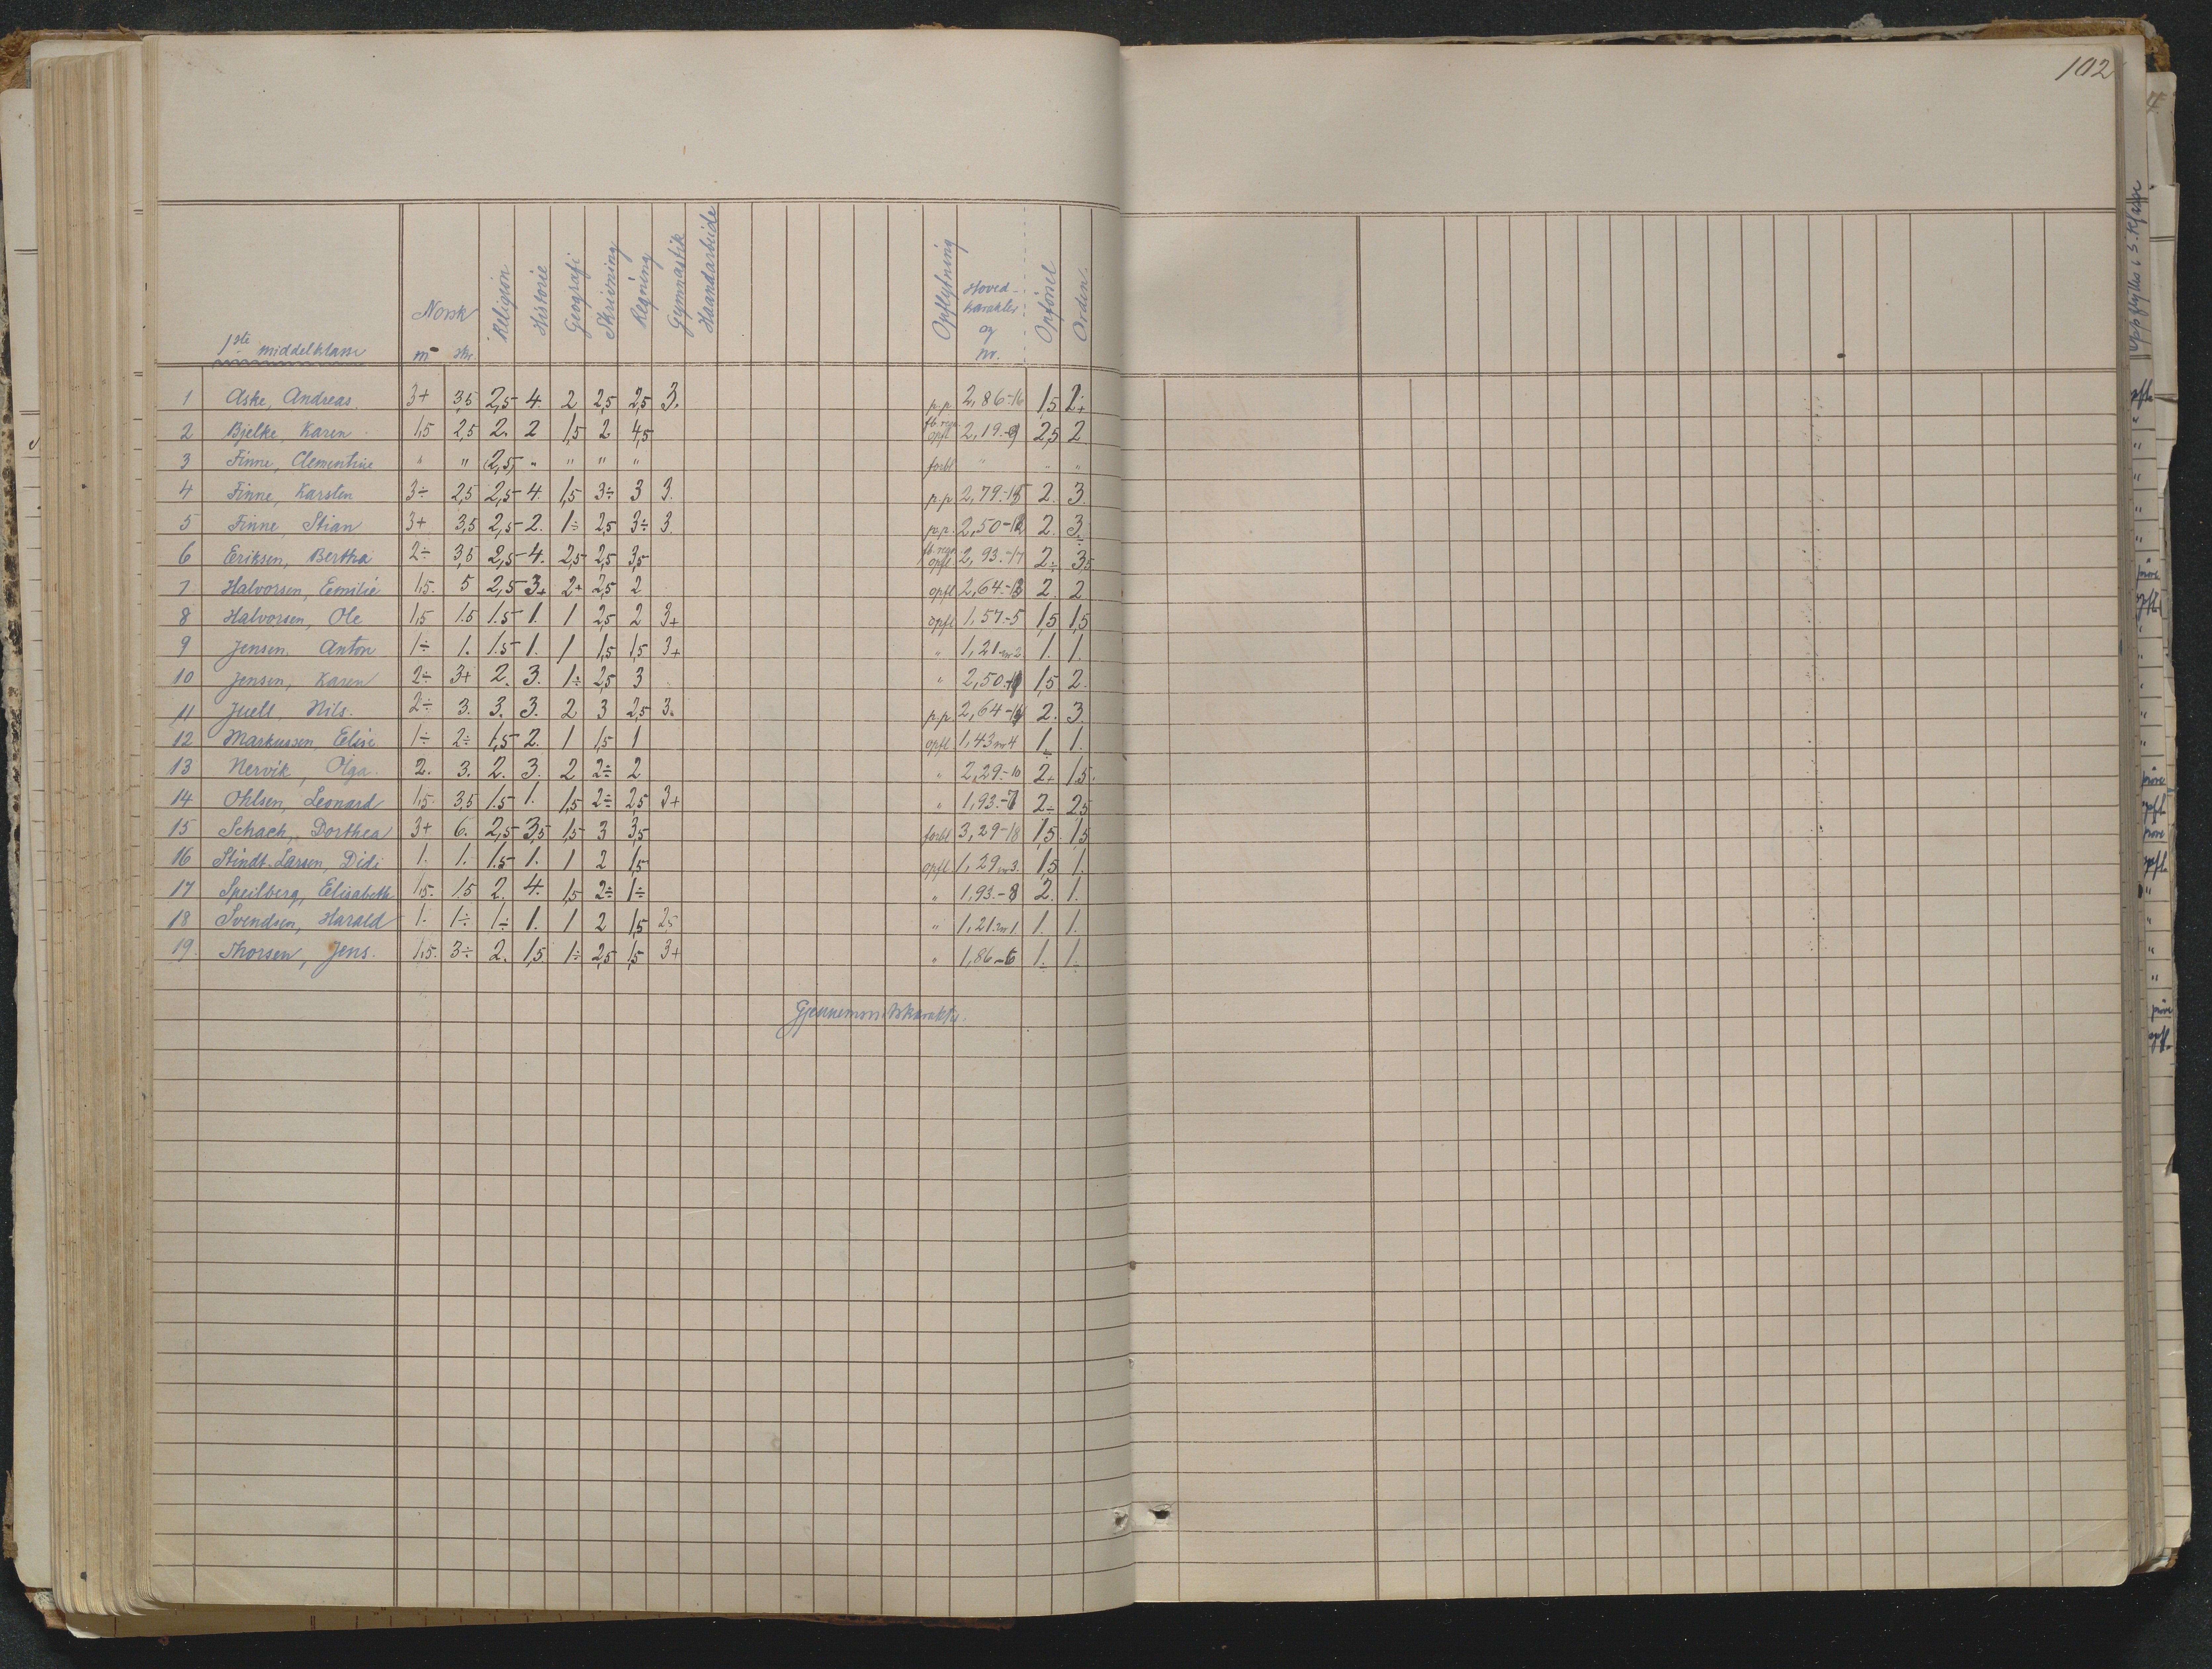 102
1ste middelklasse
Norsk m skr. Religion Historie Geografi Skrivning Regning Gymnastik Haandarbeide Opflytning Hoved-karakter og nr. Opførsel Orden.
1 Aske, Andreas 3+ 3,5 2,5 4. 2 2,5 2,5 3. p.p. 2,86-16 1,5 2+
2 Bjelke, Karen 1,5 2,5 2. 2 1,5 2 4,5 fb. regn. opfl. 2,19.-9 2,5 2
3 Finne, Clementine " " (2,5) " " " " forbl " " "
4 Finne, Karsten 3÷ 2,5 2,5 4. 1,5 3÷ 3 3. p.p. 2,79.-15 2. 3.
5 Finne, Stian 3+ 3,5 2,5 2. 1÷ 2,5 3÷ 3. p.p. 2,50-12 2. 3÷
6 Eriksen, Bertha 2÷ 3,5 2,5 4. 2,5 2,5 3,5 fb. regn. opfl. 2,93.-17 2÷ 3,5
7 Halvorsen, Emilie 1,5. 5 2,5 3+ 2+ 2,5 2 opfl 2,64.-13 2. 2
8 Halvorsen, Ole 1,5 1.5 1.5 1. 1 2,5 2 3+ opfl 1,57.-5 1,5 1,5
9 Jensen, Anton 1÷ 1. 1.5 1. 1 1,5 1,5 3+ " 1,21 nr 2 1. 1.
10 Jensen, Karen 2÷ 3+ 2. 3. 1÷ 2,5 3 " 2,50.-11 1,5 2.
11 Juell Nils. 2÷ 3. 3. 3. 2 3 2,5 3. p.p. 2,64-14 2. 3.
12 Markussen, Elise 1÷ 2÷ 1,5 2. 1 1,5 1 opfl. 1,43 nr 4 1÷ 1.
13 Nervik, Olga. 2. 3. 2. 3. 2 2÷ 2 " 2,29.-10 2+ 1.5.
14 Ohlsen, Leonard 1,5. 3,5 1.5 1. 1,5 2÷ 2,5 3+ " 1,93.-7 2÷ 2,5
15 Schach, Dorthea 3+ 6. 2,5 3,5 1,5 3 3,5 forbl 3,29-18 1,5. 1,5
16 Stindt-Larsen, Didi 1. 1. 1.5 1. 1 2 1,5 opfl. 1,29 nr 3. 1,5 1.
17 Speilberg, Elisabeth 1,5. 1.5 2. 4. 1,5 2÷ 1÷ " 1,93.-8 2. 1.
18 Svendsen, Harald 1. 1÷ 1÷ 1. 1 2 1,5 2,5 " 1,21. nr 1 1. 1.
19. Thorsen, Jens. 1,5. 3÷ 2. 1,5 1÷ 2,5 1,5 3+ " 1,86-6 1÷ 1÷